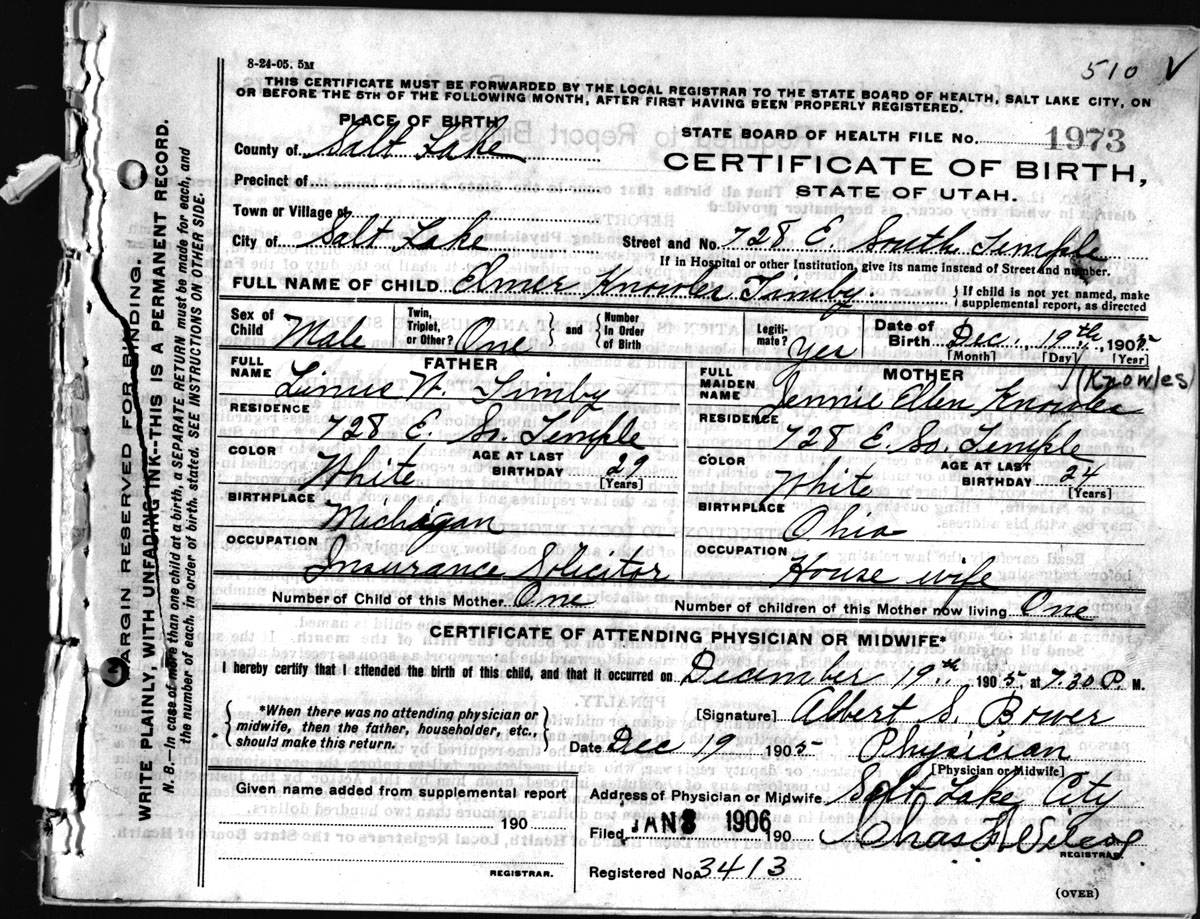 8-24-05. 5M
510 V
THIS CERTIFICATE MUST BE FORWARDED BY THE LOCAL REGISTRAR TO THE STATE BOARD OF HEALTH, SALT LAKE CITY, ON
OR BEFORE THE 5TH OF THE FOLLOWING MONTH, AFTER FIRST HAVING BEEN PROPERLY REGISTERED.
PLACE OF BIRTH
STATE BOARD OF HEALTH FILE NO. 1973
County of Salt Lake
CERTIFICATE OF BIRTH,
Precinct of
STATE OF UTAH.
Town or Village of
City of Salt Lake Street and No. 728 E. South Temple
If in Hospital or other Institution, give its name instead of Street and number.
FULL NAME OF CHILD Elmer Knowles Timby. } If child is not yet named, make supplemental report, as directed
Sex of Child Male Twin, Triplet, or Other? One } and { Number In Order of Birth Legiti-mate? Yes Date of Birth Dec., 19th, 1905
[Month] [Day] [Year]
FATHER
MOTHER
(Knowles)
FULL NAME Linus W. Timby
FULL MAIDEN NAME Jennie Ellen Knowles
RESIDENCE 728 E. So. Temple
RESIDENCE 728 E. So. Temple
COLOR White AGE AT LAST BIRTHDAY 29 [Years]
COLOR White AGE AT LAST BIRTHDAY 24 [Years]
BIRTHPLACE Michigan
BIRTHPLACE Ohio
OCCUPATION Insurance Solicitor
OCCUPATION House wife
Number of Child of this Mother One Number of children of this Mother now living One
CERTIFICATE OF ATTENDING PHYSICIAN OR MIDWIFE*
I hereby certify that I attended the birth of this child, and that it occurred on December 19th 1905 at 7.30 P. M.
{ *When there was no attending physician or midwife, then the father, householder, etc., should make this return. }
[Signature] Albert S. Bower
Date Dec 19 1905 Physician
[Physician or Midwife]
Given name added from supplemental report
Address of Physician or Midwife Salt Lake City
190
Filed JAN 8 1906 190 Chas.
REGISTRAR.
REGISTRAR.
Registered No. 3413
(OVER)
MARGIN RESERVED FOR BINDING.
WRITE PLAINLY, WITH UNFADING INK--THIS IS A PERMANENT RECORD.
N. B.—In case of more than one child at a birth, a SEPARATE RETURN must be made for each, and
the number of each, in order of birth, stated. SEE INSTRUCTIONS ON OTHER SIDE.